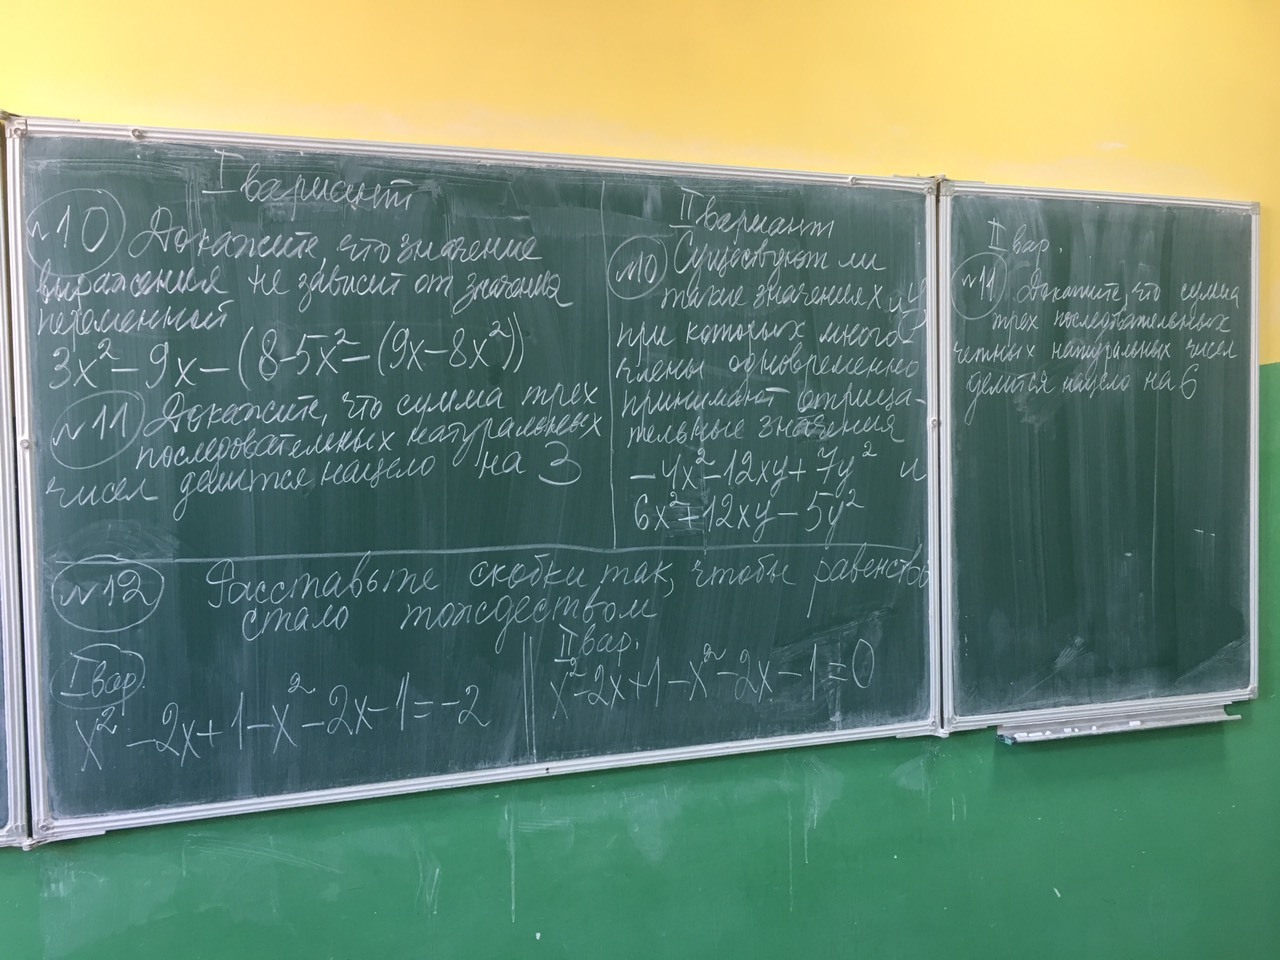 I вариант
№10 Докажите, что значение
выражения не зависит от значения
переменной
3x² - 9x - (8 - 5x² - (9x - 8x²))
№11 Докажите, что сумма трех
последовательных натуральных
чисел делится нацело на 3
II вариант
№10 Существуют ли
такие значения x и y
при которых много-
члены одновременно
принимают отрица-
тельные значения
-4x² - 12xy + 7y² и
6x² + 12xy - 5y²
II вар.
№11 Докажите, что сумма
трех последовательных
четных натуральных чисел
делится нацело на 6
№12 Расставьте скобки так, чтобы равенство
стало тождеством
I вар.
x² - 2x + 1 - x² - 2x - 1 = -2
II вар.
x² - 2x + 1 - x² - 2x - 1 = 0